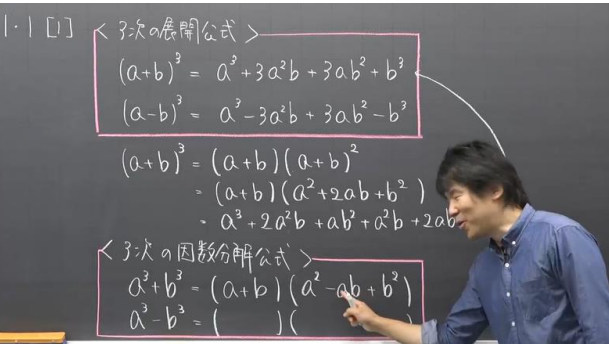 1・1 [1]
〈3次の展開公式〉
(a+b)³ = a³+3a²b+3ab²+b³
(a-b)³ = a³-3a²b+3ab²-b³
(a+b)³ = (a+b)(a+b)²
= (a+b)(a²+2ab+b²)
= a³+2a²b+ab²+a²b+2ab
〈3次の因数分解公式〉
a³+b³ = (a+b)(a²-ab+b²)
a³-b³ = (  )(  )